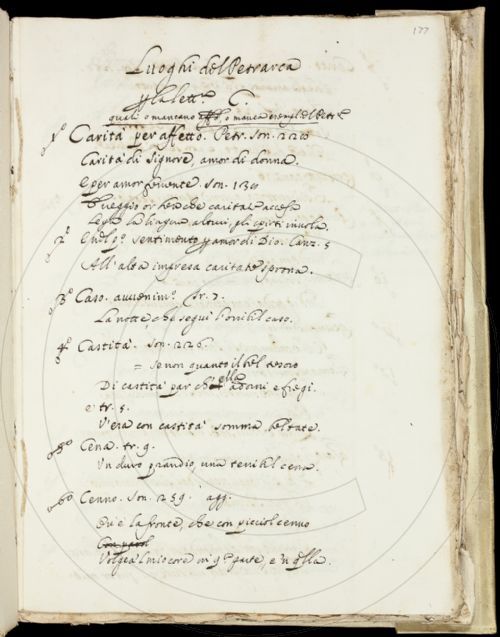 177
Luoghi del Petrarca
p la lett.ª C.
quali o mancano, o manca esempl del Petr.
1º Carità per affetto. Petr. Son. 220
Carità di Signore, amor di donna.
E per amor fervente. Son. 130
veggio or ben che caritate accesa
Lega la lingua altrui, gli spirti invola.
2º Enel pº sentimento p amor di Dio. Canz. 5
All'alta impresa caritate sprona.
3º Caso. avvenimº. tr. 7.
La notte, che seguì l'orribil caso.
4º Castità. Son. 226.
= se non quanto il bel tesoro
Di castità par ch'ella adorni e fregi.
e tr. 5.
V'era con castità somma beltate.
5º Cena. tr. 9.
Un duro prandio, una terribil cena.
6º Cenno. Son. 259. agg.
Ov'è la fronte, che con picciol cenno
Volgea 'l mio core in qª parte, e 'n qlla.